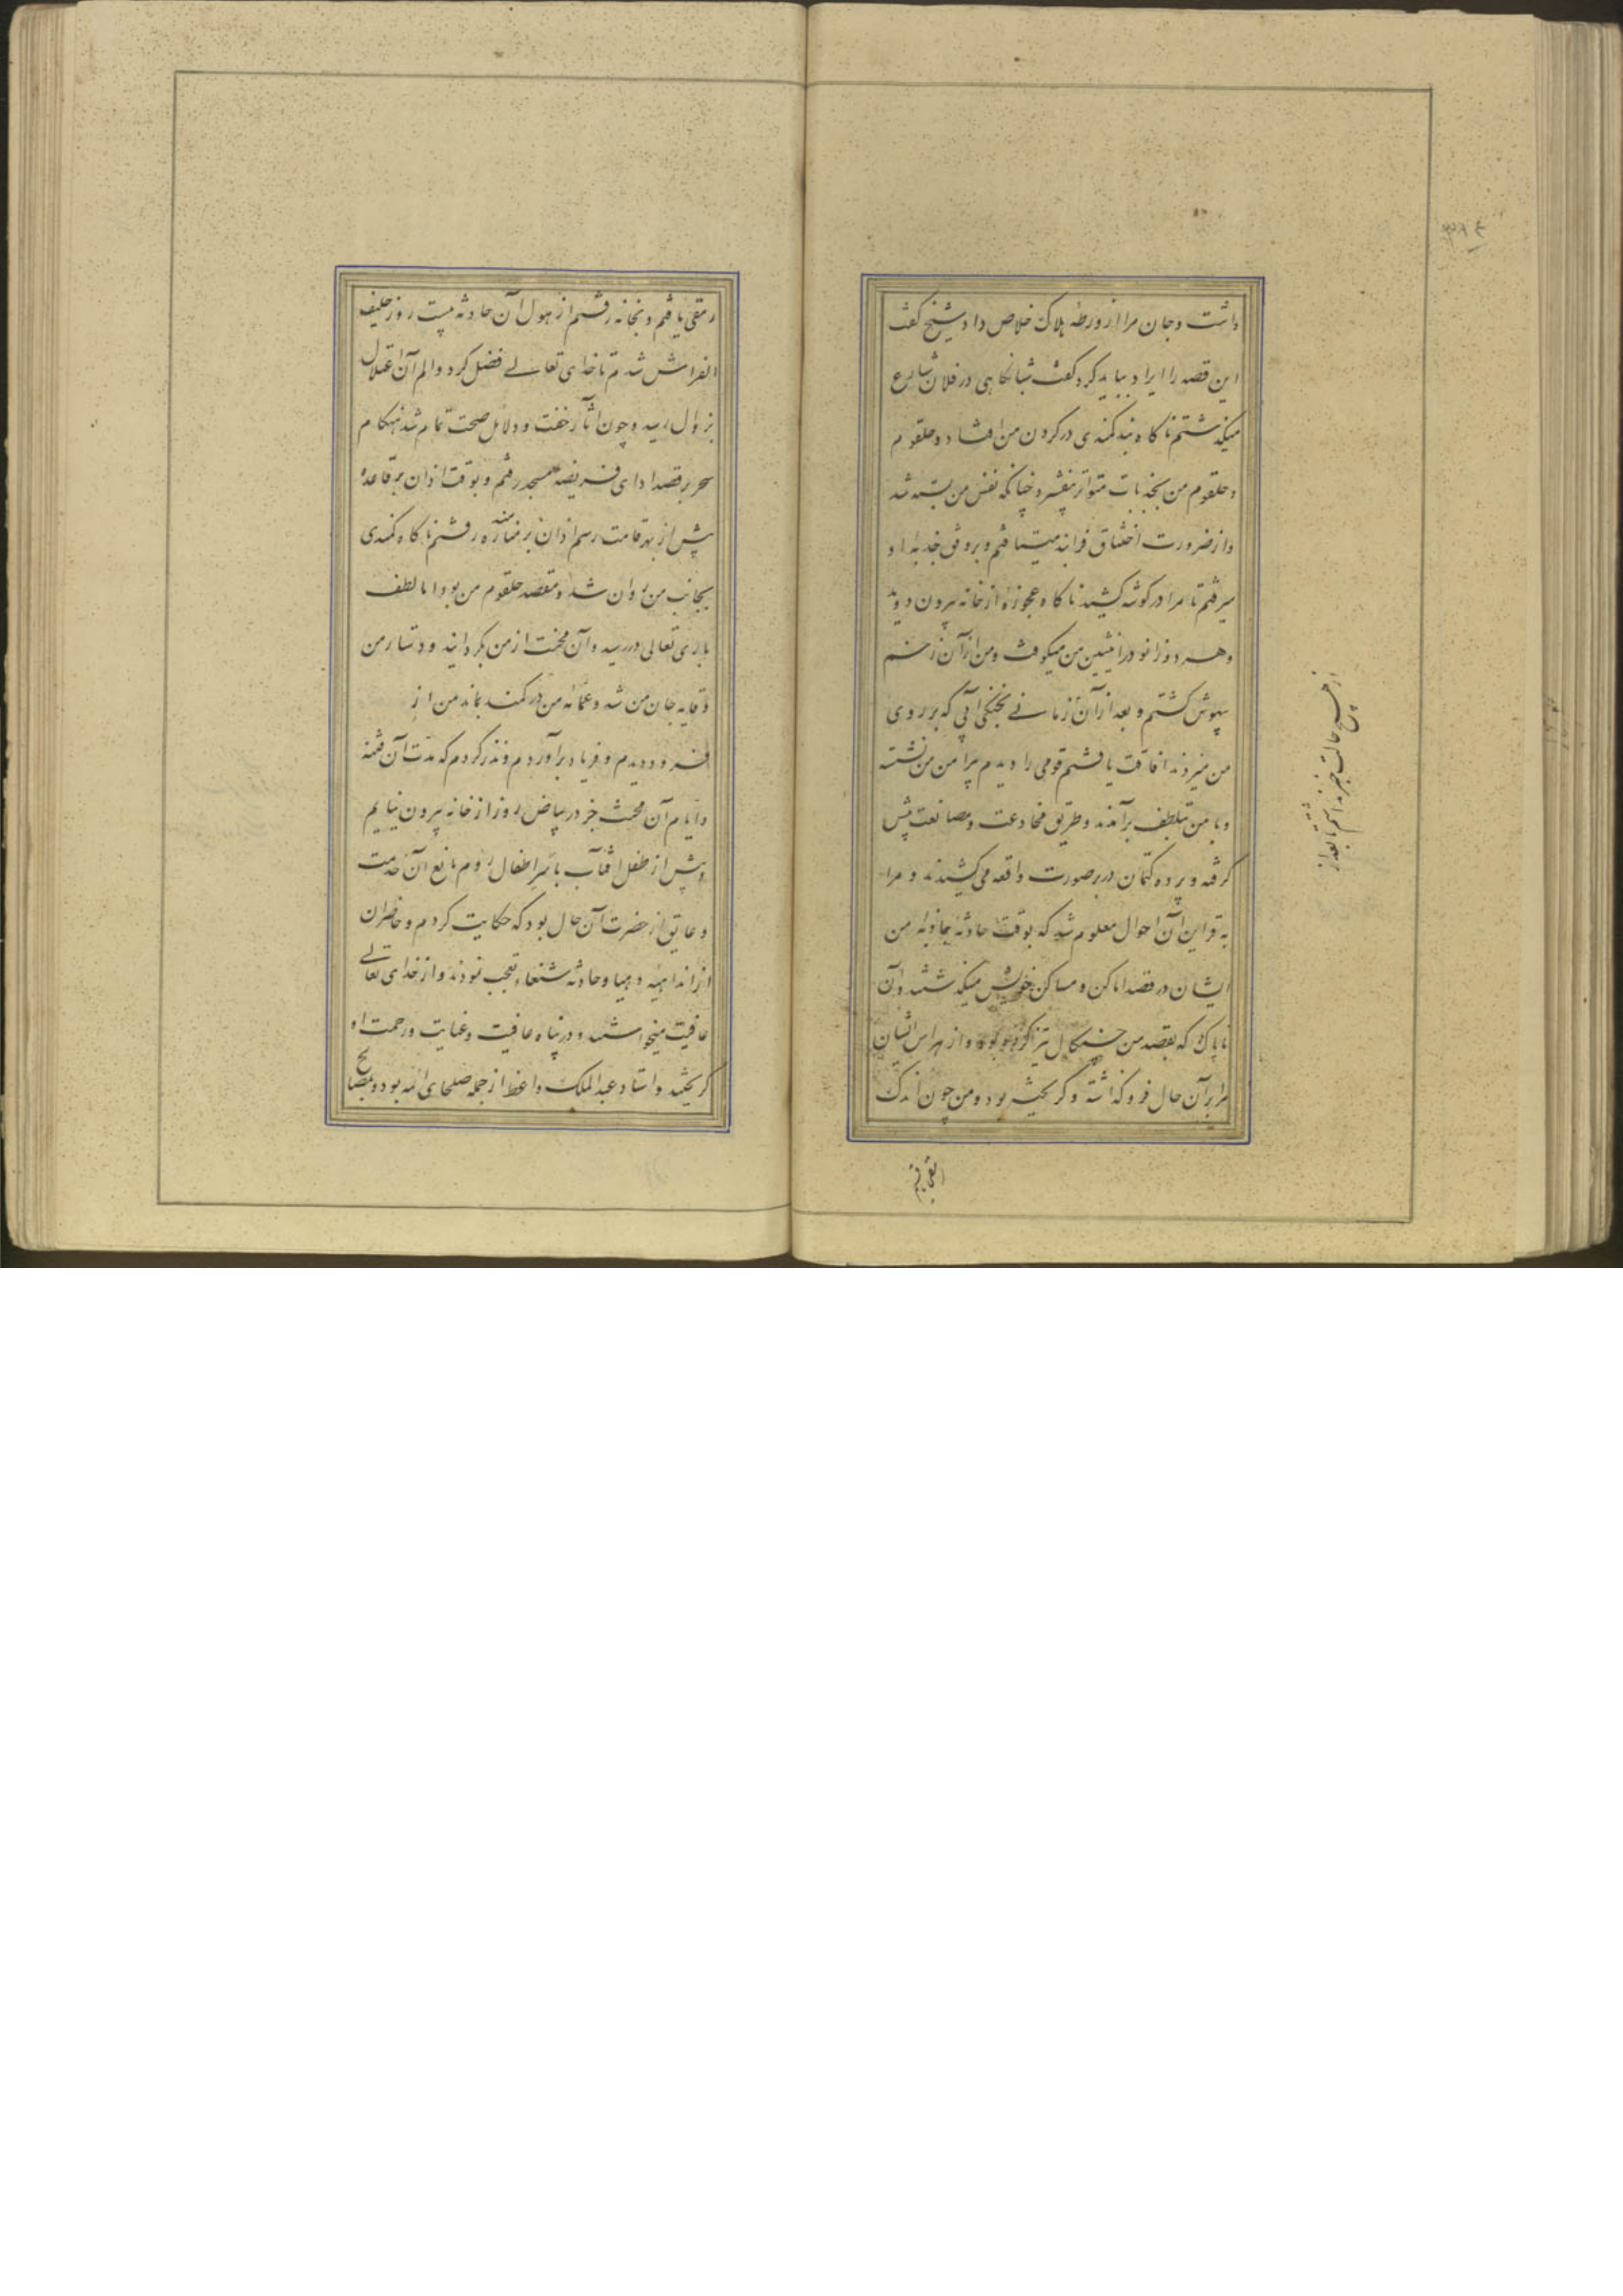 داشت و جان مرا از ورطه هلاک خلاص داد شیخ گفت
این قصه را ایراد بباید کرد گفت شبانگاهی در فلان شارع
میگذشتم ناگاه بند کمندی در گردن من افتاد و حلقوم
و حلقوم من بجذبات متواتر بیفشرد چنانکه نفس من بسته شد
و از ضرورت اختناق فرا بند میشتافتم و بر وفق جذبه او
میرفتم تا مرا در گوشه کشید ناگاه عجوزه از خانه بیرون دوید
و هر دو زانو در انثیین من میکوفت و من از آن زخم
بیهوش گشتم و بعد از آن زمانی بخنکی آبی که بر روی
من میزدند افاقت یافتم قومی را دیدم پیرامن من نشسته
و با من بتلطف برآمدند و طریق مخادعت و مصانعت پیش
گرفته و پرده کتمان در بر صورت واقعه می کشیدند و مرا
به قراین آن احوال معلوم شد که بوقت حادثه مجاذبه من
ایشان در قصد اماکن و مساکن خویش میگذشتند و آن
ناپاک که بقصد من چنگال تیز کرده بود و از هراس ایشان
مرا بر آن حال فرو گذاشته و گریخته بود و من چون اندک
از هیچ حالت خبر نداشتم تا بعد از
رمقی یافتم و بخانه رفتم از هول آن حادثه بیست روز حلیف
الفراش شدم تا خدای تعالی فضل کرد و الم آن اعتلال
بزوال رسید و چون آثار خفت و دلایل صحت تمام شد هنگام
سحر بر قصد ادای فریضه بمسجد رفتم و بوقت اذان بر قاعده
پیش از بهر اقامت رسم اذان بر مناره رفتم ناگاه کمندی
بجانب من روان شد و مقصد حلقوم من بود اما لطف
باری تعالی در رسید و آن محنت از من بگردانید و دستار من
وقایه جان من شد و عمامه من در کمند بماند من از
فرود دویدم و فریاد برآوردم و نذر کردم که مدت آن فتنه
و ایام آن محنت جز در بیاض روز از خانه بیرون نیایم
و پیش از طفل آفتاب با سر اطفال روم مانع آن خدمت
و عایق از حضرت آن حال بود که حکایت کردم و حاضران
از آن داهیه دهیا و حادثه شنعاء تعجب نمودند و از خدای تعالی
عافیت میخواستند و در پناه عافیت و عنایت و رحمت او
گریختند و استاد عبدالملک واعظ از جمله صلحای ائمه بود و بمصالح